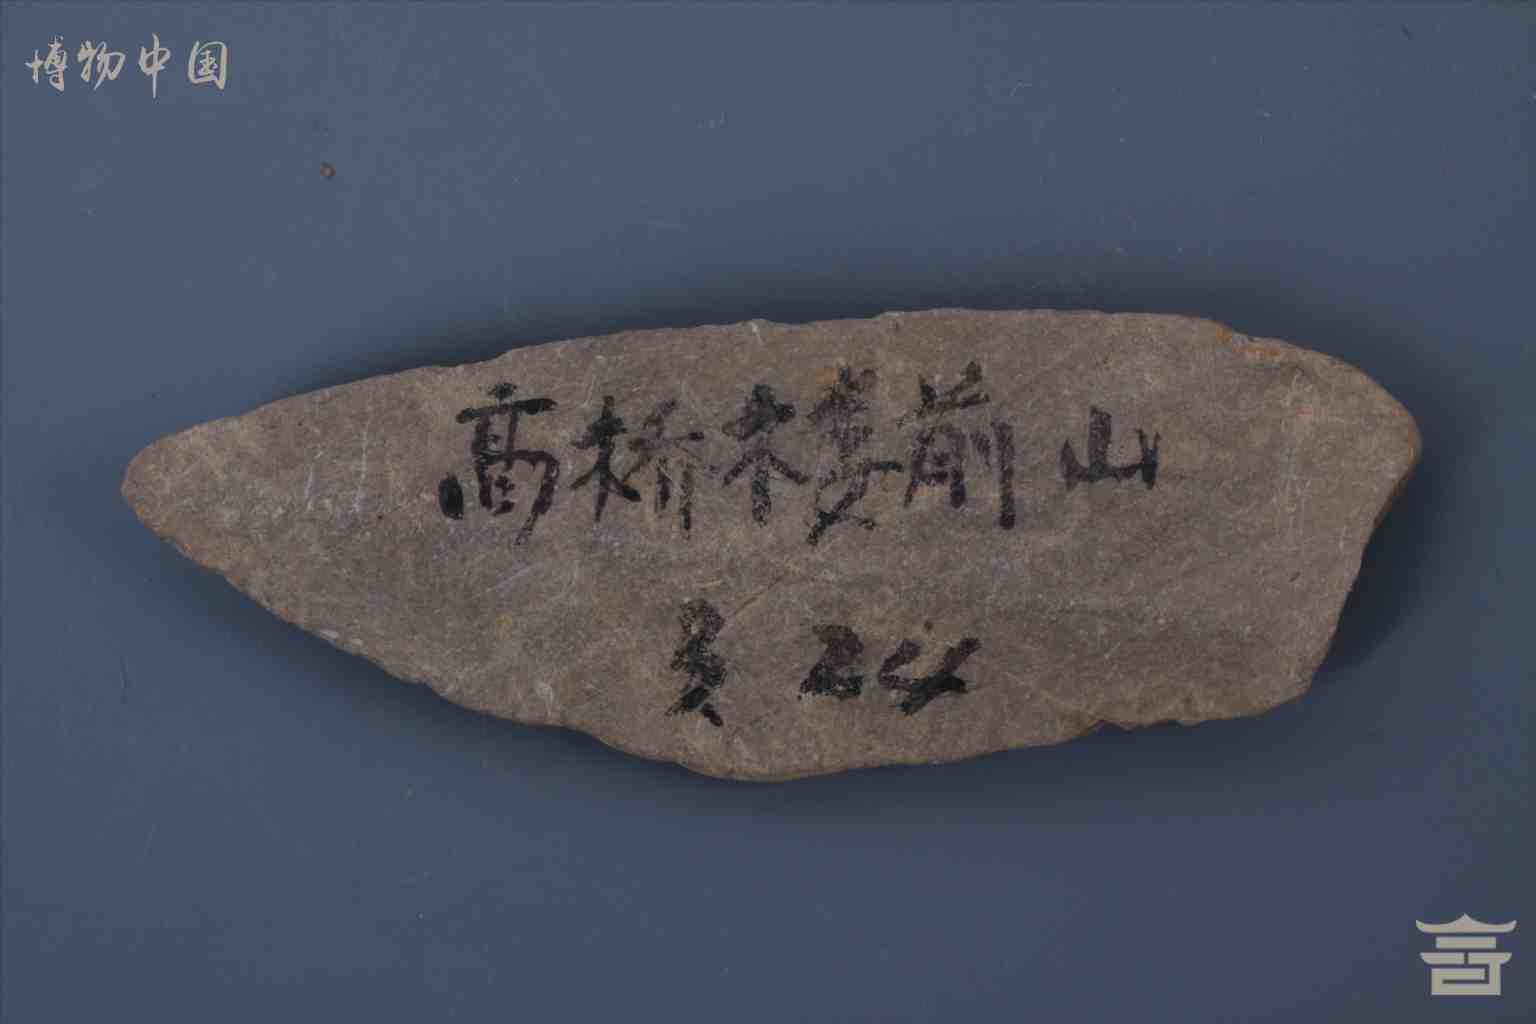 博物中国
高桥楼前山
24